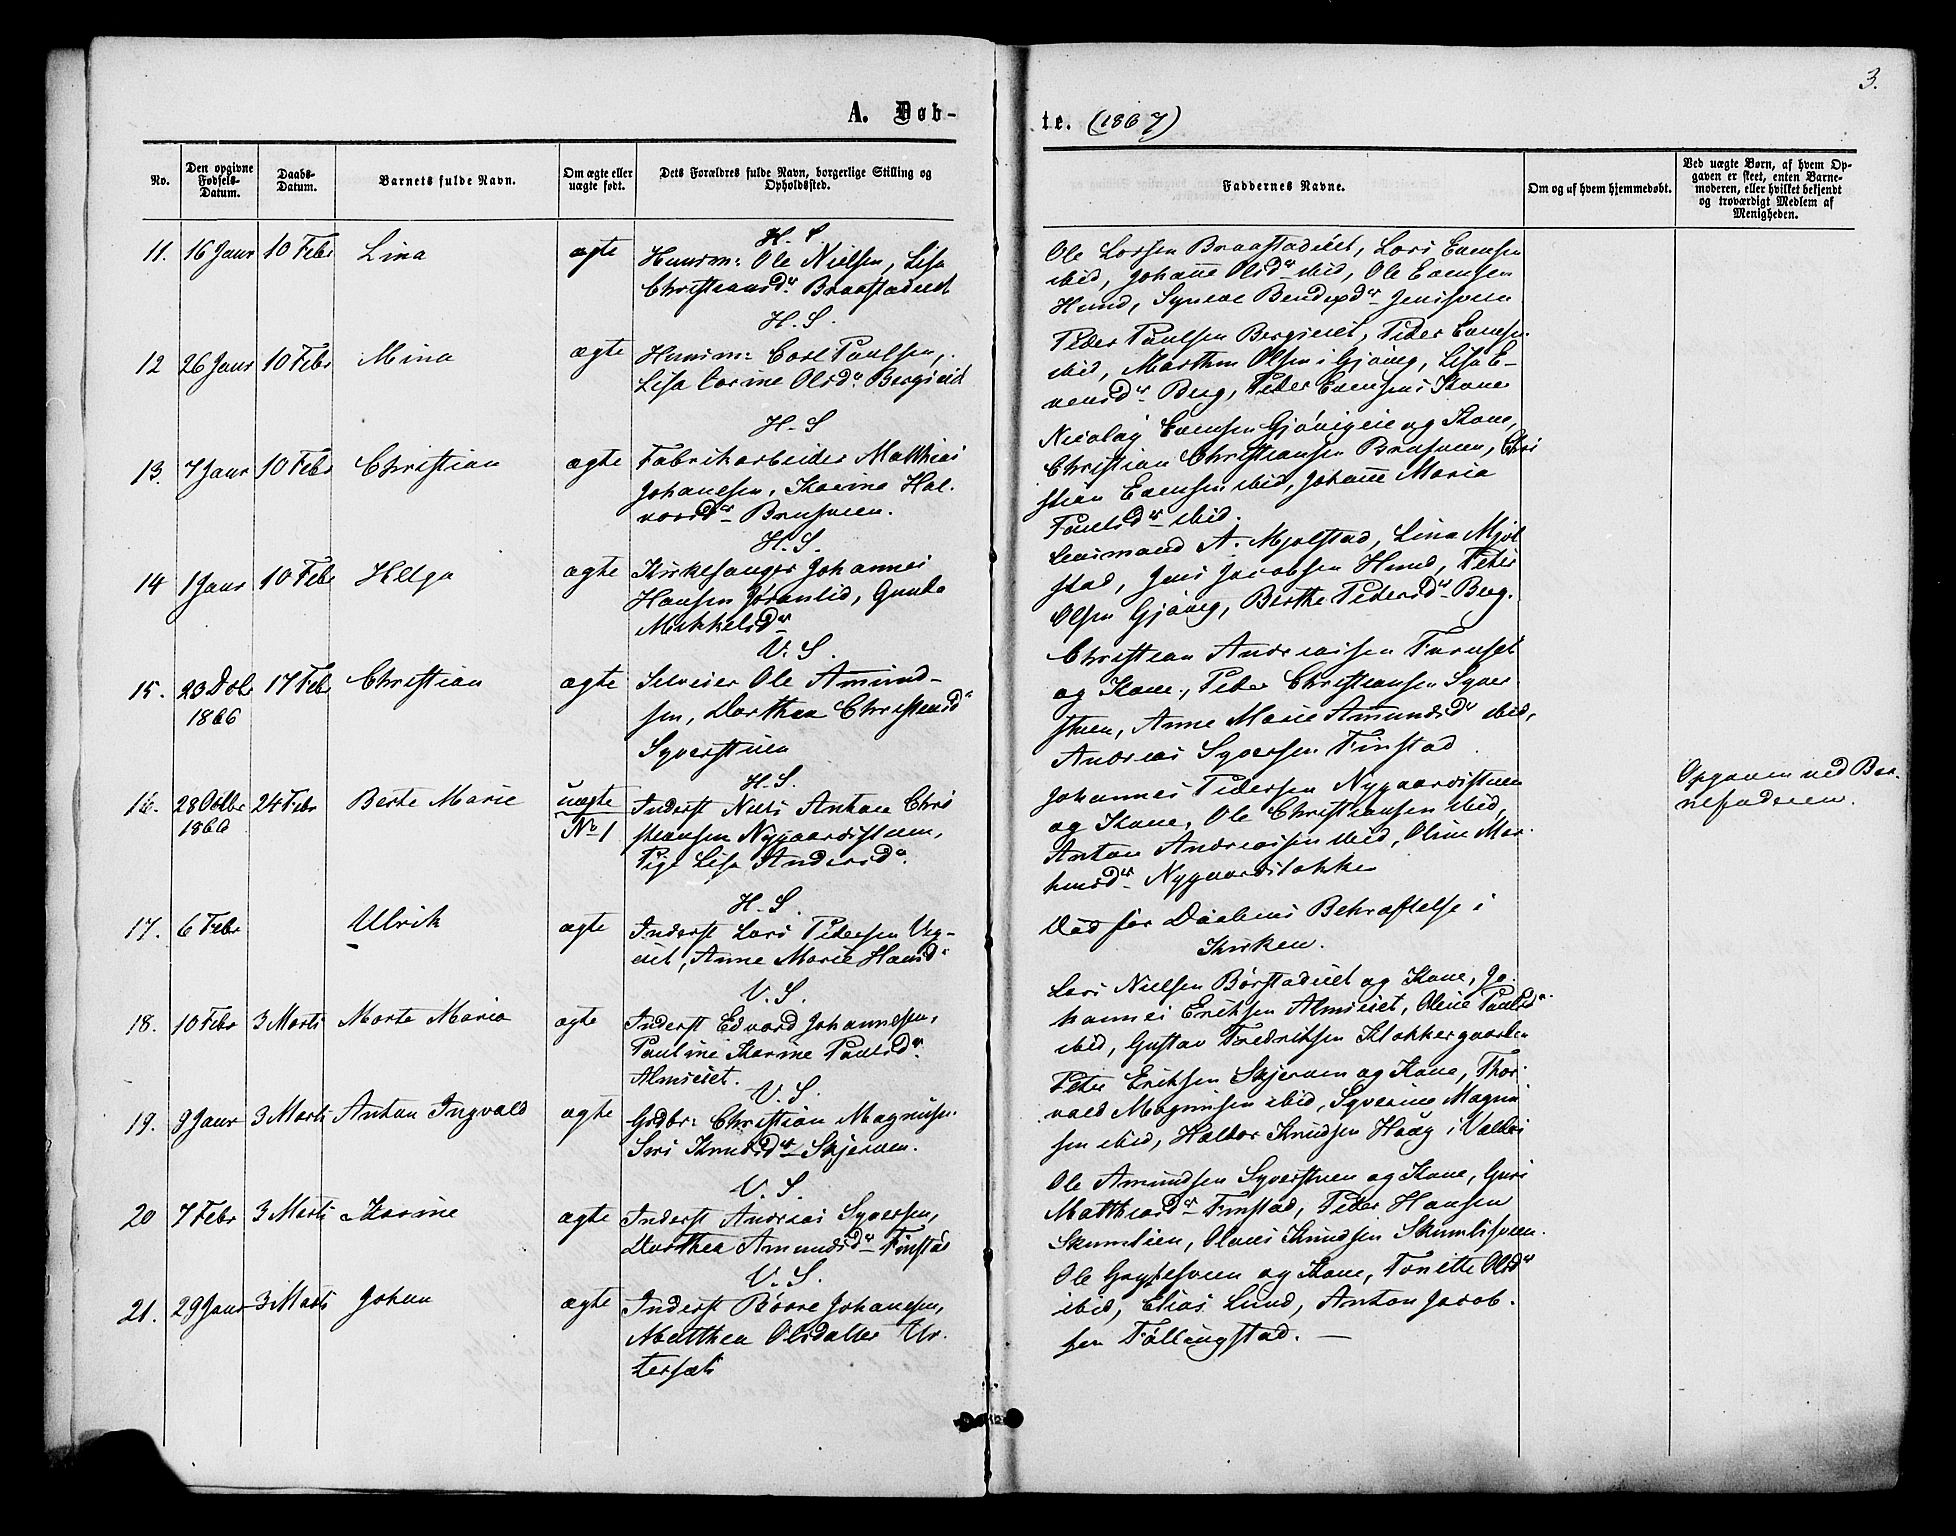 3.
A. Døb-
te. (1867)
No.
Den opgivne Fødsels-Datum.
Daabs-Datum.
Barnets fulde Navn.
Om ægte eller uægte født.
Dets Forældres fulde Navn, borgerlige Stilling og Opholdssted.
Faddernes Navne.
Om og af hvem hjemmedøbt.
Ved uægte Børn, af hvem Op-
gaven er skeet, enten Barne-
moderen, eller hvilket bekjendt
og troværdigt Medlem af
Menigheden.
11. 16 Janr 10 Febr Lina ægte
H. S
Huusm: Ole Nielsen, Lisa
Christiansdr Braastadeiet
Ole Larsen Braastadeiet, Lars Evensen
ibid, Johanne Olsdr ibid, Ole Evensen
Hund, Synève Bendixdr Jensveen
12 26 Janr 10 Febr Mina ægte
H. S.
Huusm: Carl Paulsen,
Lisa Carine Olsdr Bergseid
Peder Paulsen Bergseiet, Peder Evensen
ibid, Marthin Olsen i Gjøvig, Lisa E-
vensdr Berg, Peder Evensens Kone
13. 7 Janr 10 Febr Christian ægte
H. S
Fabrikarbeider Matthias
Johanesen, Karine Hal-
vorsdr Brusveen.
Nicolay Evensen Gjøvigeie og Kone,
Christian Christiansen Brusveen, Chri
stian Evensen ibid, Johanne Maria
Paulsdr ibid.
14 1 Janr 10 Febr Helga ægte
H. S.
Kirkesanger Johannes
Hansen Jøranlid, Gunda
Mikkelsdr
Lensmand A. Mjølstad, Lina Mjøl
stad, Jens Jacobsen Hund, Peter
Olsen Gjøvig, Berthe Pedersdr Berg.
15. 23 Dcbr 1866 17 Febr Christian ægte
V. S.
Selveier Ole Amund-
sen, Dorthea Christensdr
Syverstuen
Christian Andreassen Furuset
og Kone, Peder Christiansen Syver
stuen, Anne Marie Amundsdr ibid,
Andreas Syversen Finstad
16. 28 Octbr 1866 24 Febr Berte Marie uægte No 1
H. S.
Inderst Niels Anton Chri
stiansen Nygaardsstuen,
Pige Lisa Andersdr
Johannes Pedersen Nygaardsstuen
og Kone, Ole Christiansen ibid,
Anton Andreassen ibid, Oline Mar-
kusdr Nygaardsløkken
Opgaven ved Bar-
nefaderen.
17. 6 Febr Ulrik ægte
H. S.
Inderst Lars Pedersen Veg-
eiet, Anne Marie Hansdr
Død før Daabens Bekræftelse i
Kirken.
18. 10 Febr 3 Marts Marte Maria ægte
V. S.
Inderst Edvard Johannesen,
Pauline Karine Paulsdr
Almseiet.
Lars Nielsen Børstadeiet og Kone, Jo-
hannes Eriksen Almseiet, Oline Paulsdr
ibid, Gustav Fredriksen Klokkergaarden
19. 9 Janr 3 Marts Anton Ingvald ægte
V. S.
Grdbr: Christian Magnusen
Siri Knudsdr Skjerven.
Peter Eriksen Skjerven og Kone, Thor
vald Magnusen ibid, Syverine Magnu
sen ibid, Halvor Knudsen Haag i Valdres
20 7 Febr 3 Marts Karine ægte
V. S.
Inderst Andreas Syversen,
Dorthea Amundsdr Finstad
Ole Amundsen Syverstuen og Kone, Guri
Matthiasdr Finstad, Peder Hansen
Skumlien, Olaves Knudsen Skumlisveen.
21. 29 Janr 3 Marts Johan ægte
V. S.
Inderst Børre Johanesen,
Matthea Olsdatter Ur-
tersæt
Ole og Kone, Tonette Olsdr
ibid, Elias Lund, Anton Jacob-
sen Føllingstad. —